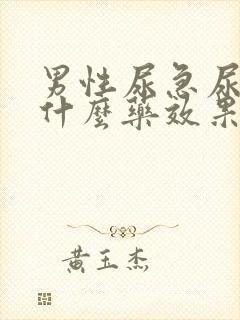 男性尿急尿
什麼藥效果
黃玉杰